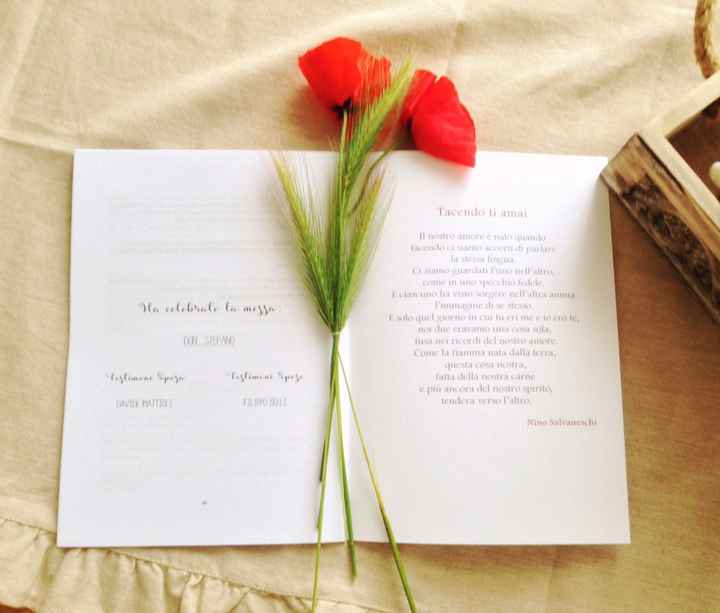 Ha celebrato la messa:
DON STEFANO
Testimoni Sposo
Testimoni Sposo
DAVIDE
FILIPPO
Tacendo ti amai
Il nostro amore è nato quando
tacendo ci siamo accorti di parlare
la stessa lingua.
Ci siamo guardati l'uno nell'altro,
come in uno specchio fedele.
E ciascuno ha visto sorgere nell'altra anima
l'immagine di se stesso.
E solo quel giorno in cui tu eri me e io ero te,
noi due eravamo una cosa sola,
fusa nei ricordi del nostro amore.
Come la fiamma nata dalla terra,
questa cosa nostra,
fatta della nostra carne
e più ancora del nostro spirito,
tendeva verso l'altro.
Nino Salvaneschi